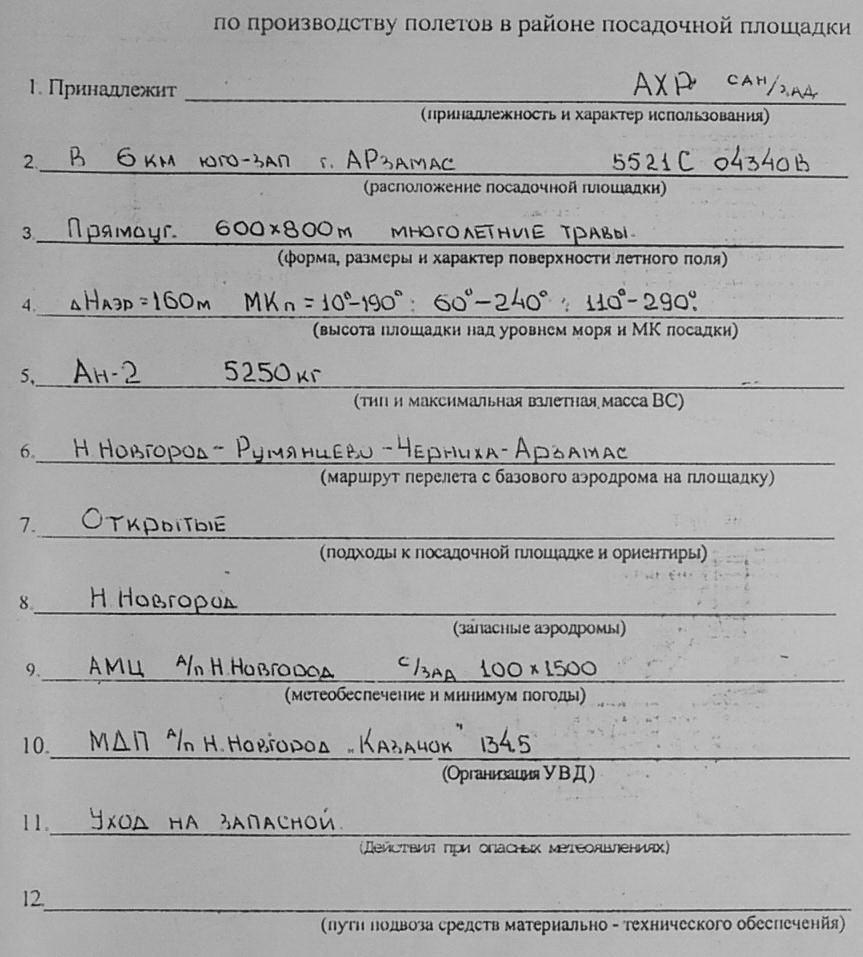 по производству полетов в районе посадочной площадки
1. Принадлежит АХР сан/зад
(принадлежность и характер использования)
2. В 6 км юго-зап г. Арзамас 5521С 04340В
(расположение посадочной площадки)
3. Прямоуг. 600×800м многолетние травы.
(форма, размеры и характер поверхности летного поля)
4. ΔНаэр=160м МКп = 10°-190°; 60°-240°; 110°-290°;
(высота площадки над уровнем моря и МК посадки)
5. Ан-2 5250 кг
(тип и максимальная взлетная масса ВС)
6. Н.Новгород - Румянцево - Черниха - Арзамас
(маршрут перелета с базового аэродрома на площадку)
7. Открытые
(подходы к посадочной площадке и ориентиры)
8. Н.Новгород
(запасные аэродромы)
9. АМЦ а/п Н.Новгород с/зад 100×1500
(метеобеспечение и минимум погоды)
10. МДП а/п Н.Новгород „Казачок" 134.5
(Организация УВД)
11. Уход на запасной.
(Действия при опасных метеоявлениях)
12.
(пути подвоза средств материально - технического обеспечения)